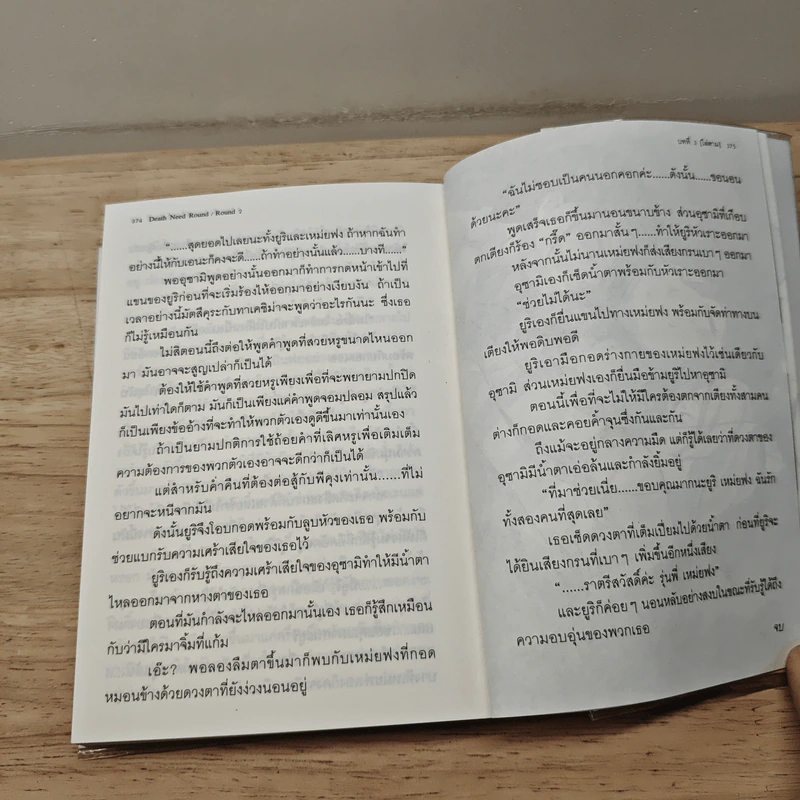 374 Death Need Round / Round ว
"......สุดยอดไปเลยนะทั้งยูริและเหม่ยฟง ถ้าหากฉันทำ
อย่างนี้ให้กับเอนะก็คงจะดี......ถ้าทำอย่างนั้นแล้ว......บางที......"
พออุซามิพูดอย่างนั้นออกมาก็ทำการกดหน้าเข้าไปที่
แขนของยูริก่อนที่จะเริ่มร้องไห้ออกมาอย่างเงียบงัน ถ้าเป็น
เวลาอย่างนี้มัตสึคุระกับทาเคชิม่าจะพูดว่าอะไรกันนะ ซึ่งเธอ
ก็ไม่รู้เหมือนกัน
ไม่สิตอนนี้ถึงต่อให้พูดคำพูดที่สวยหรูขนาดไหนออก
มา มันอาจจะสูญเปล่าก็เป็นได้
ต้องให้ใช้คำพูดที่สวยหรูเพียงเพื่อที่จะพยายามปกปิด
มันไปเท่าใดก็ตาม มันก็เป็นเพียงแค่คำพูดจอมปลอม สรุปแล้ว
ก็เป็นเพียงข้ออ้างที่จะทำให้พวกตัวเองดูดีขึ้นมาเท่านั้นเอง
ถ้าเป็นยามปกติการใช้ถ้อยคำที่เลิศหรูเพื่อเติมเต็ม
ความต้องการของพวกตัวเองอาจจะดีกว่าก็เป็นได้
แต่สำหรับค่ำคืนที่ต้องต่อสู้กับพีคุงเท่านั้น......ที่ไม่
อยากจะหนีจากมัน
ดังนั้นยูริจึงโอบกอดพร้อมกับลูบหัวของเธอ พร้อมกับ
ช่วยแบกรับความเศร้าเสียใจของเธอไว้
ยูริเองก็รับรู้ถึงความเศร้าเสียใจของอุซามิทำให้มีน้ำตา
ไหลออกมาจากหางตาของเธอ
ตอนที่มันกำลังจะไหลออกมานั้นเอง เธอก็รู้สึกเหมือน
กับว่ามีใครมาจิ้มที่แก้ม
เอ๊ะ? พอลองลืมตาขึ้นมาก็พบกับเหม่ยฟงที่กอด
หมอนข้างด้วยดวงตาที่ยังง่วงนอนอยู่
บทที่ 3 375
"ฉันไม่ชอบเป็นคนนอกคอกค่ะ......ดังนั้น......ขอนอน
ด้วยนะคะ"
พูดเสร็จเธอก็ขึ้นมานอนขนาบข้าง ส่วนอุซามิที่เกือบ
ตกเตียงก็ร้อง "กรี๊ด" ออกมาสั้นๆ......ทำให้ยูริหัวเราะออกมา
หลังจากนั้นไม่นานเหม่ยฟงก็ส่งเสียงกรนเบาๆ ออกมา
อุซามิเองก็เช็ดน้ำตาพร้อมกับหัวเราะออกมา
"ช่วยไม่ได้นะ"
ยูริเองก็ยื่นแขนไปทางเหม่ยฟง พร้อมกับจัดท่าทางบน
เตียงให้พอดิบพอดี
ยูริเอามือกอดร่างกายของเหม่ยฟงไว้เช่นเดียวกับ
อุซามิ ส่วนเหม่ยฟงเองก็ยื่นมือข้ามยูริไปหาอุซามิ
ตอนนี้เพื่อที่จะไม่ให้มีใครต้องตกจากเตียงทั้งสามคน
ต่างก็กอดและคอยค้ำจุนซึ่งกันและกัน
ถึงแม้จะอยู่กลางความมืด แต่ก็รู้ได้เลยว่าที่ดวงตาของ
อุซามิมีน้ำตาเอ่อล้นและกำลังยิ้มอยู่
"ที่มาช่วยเนี่ย......ขอบคุณมากนะยูริ เหม่ยฟง ฉันรัก
ทั้งสองคนที่สุดเลย"
เธอเช็ดดวงตาที่เต็มเปี่ยมไปด้วยน้ำตา ก่อนที่ยูริจะ
ได้ยินเสียงกรนที่เบาๆ เพิ่มขึ้นอีกหนึ่งเสียง
"......ราตรีสวัสดิ์ค่ะ รุ่นพี่ เหม่ยฟง"
และยูริก็ค่อยๆ นอนหลับอย่างสงบในขณะที่รับรู้ได้ถึง
ความอบอุ่นของพวกเธอ
จบ